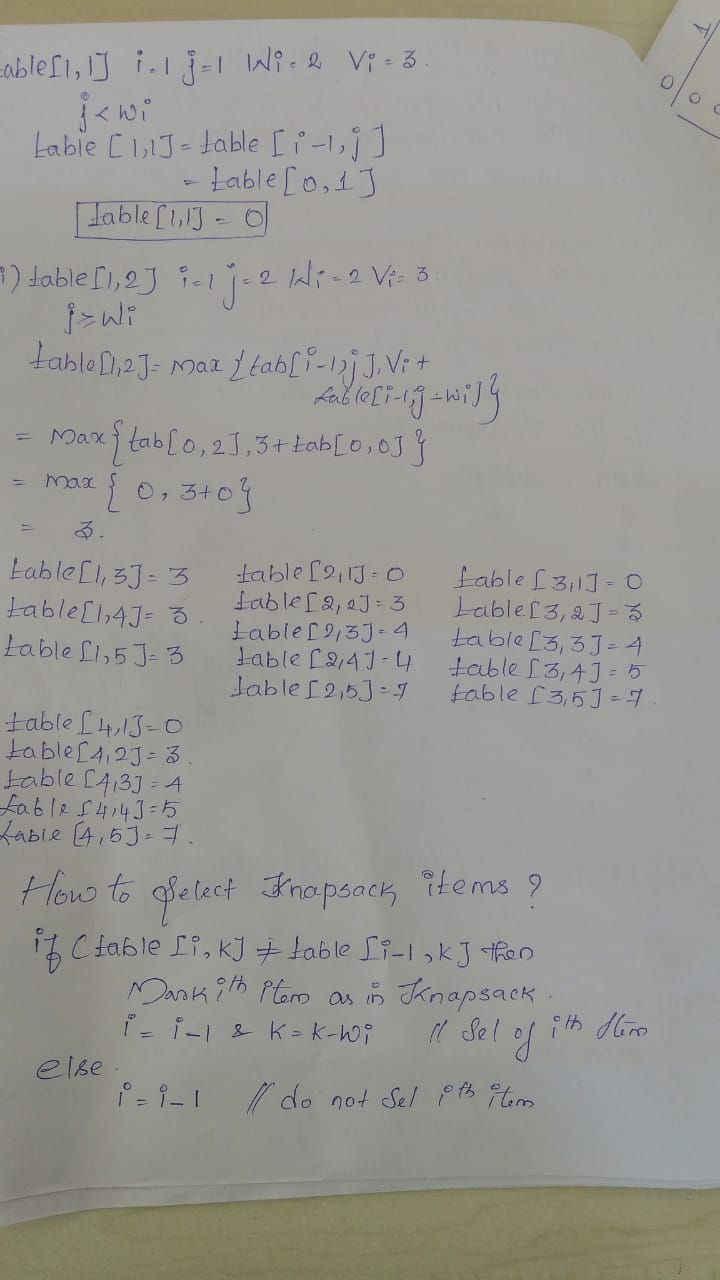 table[1,1] i=1 j=1 Wi=2 Vi=3.
j<wi
table [1,1]= table [i-1,j]
= table[0,1]
table[1,1] = 0
i) table[1,2] i=1 j=2 Wi=2 Vi=3
j≥Wi
table[1,2]= max {tab[i-1,j],Vi +
table[i-1,j-wi]}
= max{tab[0,2],3+tab[0,0]}
= max { 0, 3+0}
= 3.
table[1,3]= 3 table[2,1]=0 table[3,1]=0
table[1,4]= 3. table[2,2]=3 table[3,2]=3
table[1,5]=3 table[2,3]=4 table[3,3]=4
table[2,4]=4 table[3,4]=5
table[2,5]=7 table [3,5]=7.
table[4,1]=0
table[4,2]=3.
table[4,3]=4
table [4,4]=5
table [4,5]=7.
How to Select Knapsack items ?
if (table [i,k] ≠ table [i-1,k] then
Mark ith item as in Knapsack.
i = i-1 & K=K-Wi // Sel of ith Item
else.
i=i-1 // do not Sel ith item
1
0 0 0